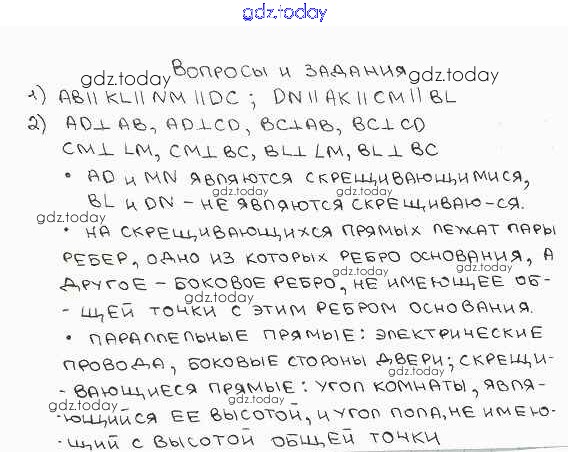 gdz.today
Вопросы и задания
1) AB || KL || NM || DC ; DN || AK || CM || BL
2) AD ⊥ AB, AD ⊥ CD, BC ⊥ AB, BC ⊥ CD
CM ⊥ LM, CM ⊥ BC, BL ⊥ LM, BL ⊥ BC
• AD и MN являются скрещивающимися,
BL и DN - не являются скрещиваю-ся.
• На скрещивающихся прямых лежат пары
ребер, одно из которых ребро основания, а
другое - боковое ребро, не имеющее об-
- щей точки с этим ребром основания.
• Параллельные прямые: электрические
провода, боковые стороны двери; скрещи-
- вающиеся прямые: угол комнаты, явля-
- ющийся ее высотой, и угол пола, не имею-
- щий с высотой общей точки
gdz.today
gdz.today
gdz.today
gdz.today
gdz.today
gdz.today
gdz.today
gdz.today
gdz.today
gdz.today
gdz.today
gdz.today